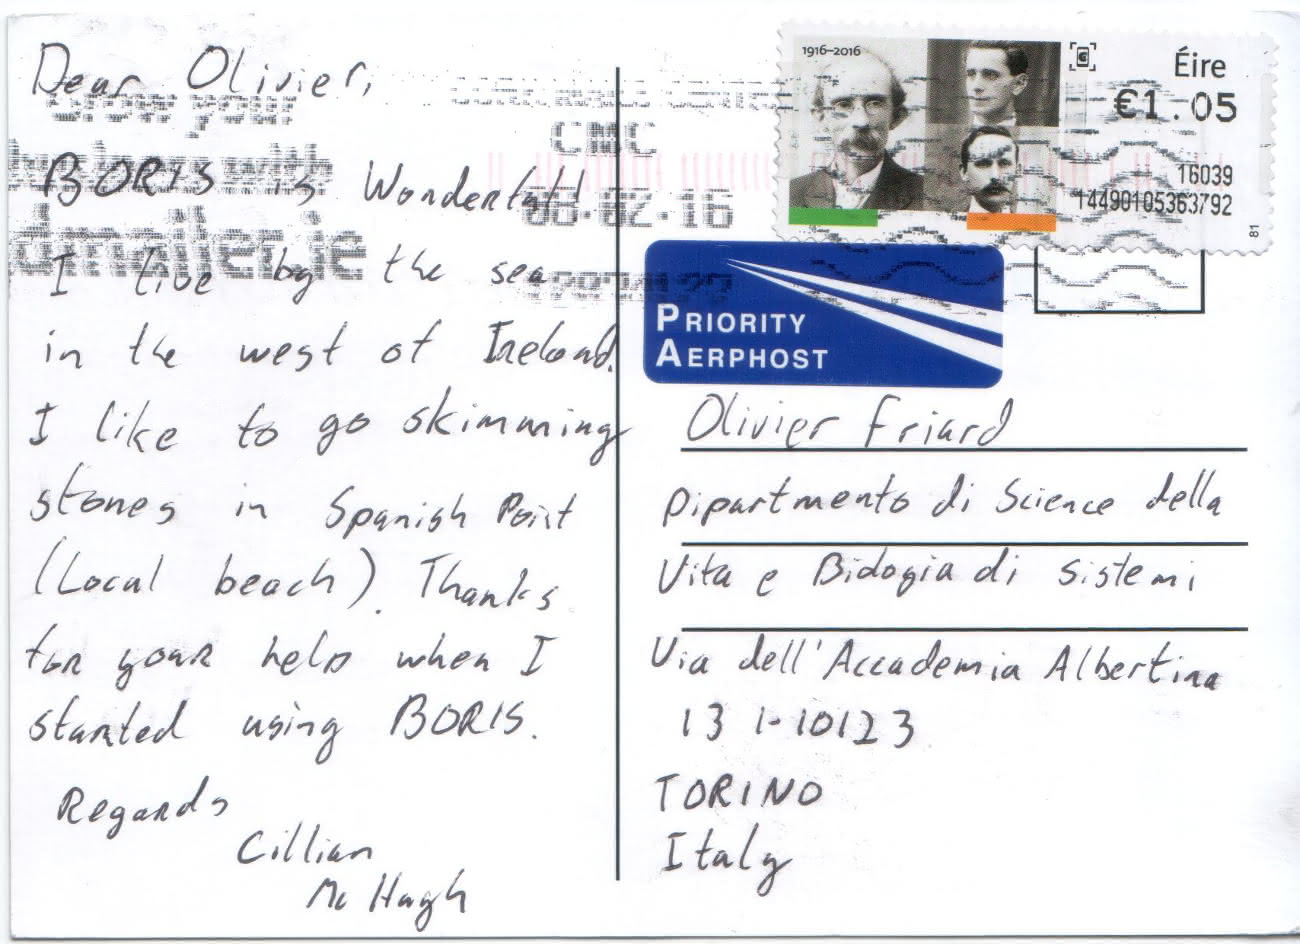 Dear Olivier,
BORIS is Wonderful!
I live by the sea
in the west of Ireland.
I like to go skimming
stones in Spanish Point
(Local beach). Thanks
for your help when I
started using BORIS.
Regards
Cillian
Mc Hugh
Grow your
business with
dmailer.ie
CMC
08-02-16
1916–2016
Éire
€1.05
16039
14490105363792
81
PRIORITY
AERPHOST
Olivier Friard
Dipartmento di Science della
Vita e Biologia di sistemi
Via dell'Accademia Albertina
13 I-10123
TORINO
Italy